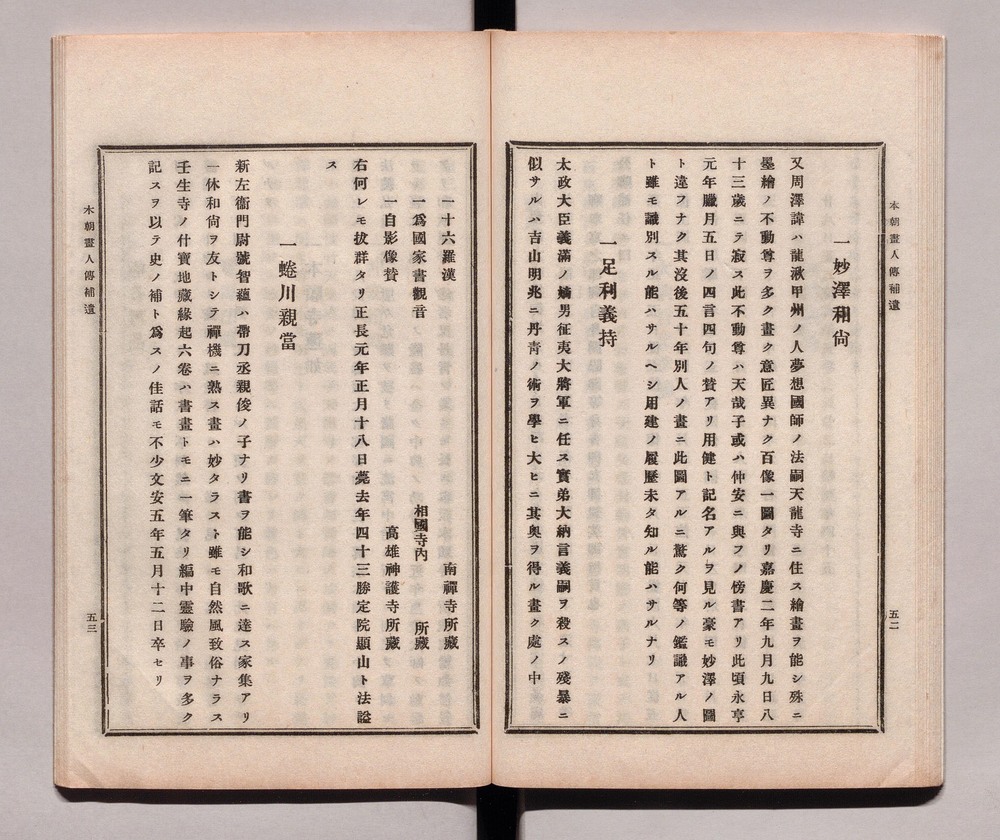 本朝畫人傳補遺
五二
一妙澤和尙
又周澤諱ハ龍湫甲州ノ人夢想國師ノ法嗣天龍寺ニ住ス繪畫ヲ能シ殊ニ
墨繪ノ不動尊ヲ多ク畫ク意匠異ナク百像一圖タリ嘉慶二年九月九日八
十三歲ニテ寂ス此不動尊ハ天哉子或ハ仲安ニ與フノ傍書アリ此頃永享
元年臘月五日ノ四言四句ノ贊アリ用健ト記名アルヲ見ル豪モ妙澤ノ圖
ト違フナク其沒後五十年別人ノ畫ニ此圖アルニ驚ク何等ノ鑑識アル人
ト雖モ識別スル能ハサルヘシ用建ノ履歷未タ知ル能ハサルナリ
一足利義持
太政大臣義滿ノ嫡男征夷大將軍ニ任ス實弟大納言義嗣ヲ殺スノ殘暴ニ
似サルハ吉山明兆ニ丹靑ノ術ヲ學ヒ大ヒニ其奧ヲ得ル畫ク處ノ中
一十六羅漢 南禪寺所藏
一爲國家書觀音 相國寺內 所藏
一自影像贊 高雄神護寺所藏
右何レモ拔群タリ正長元年正月十八日薨去年四十三勝定院顯山ト法諡
ス
一蜷川親當
新左衞門尉號智蘊ハ帶刀丞親俊ノ子ナリ書ヲ能シ和歌ニ達ス家集アリ
一休和尙ヲ友トシテ禪機ニ熟ス畫ハ妙タラスト雖モ自然風致俗ナラス
壬生寺ノ什寶地藏緣起六卷ハ書畫トモニ一筆タリ編中靈驗ノ事ヲ多ク
記スヲ以テ史ノ補ト爲スノ佳話モ不少文安五年五月十二日卒セリ
本朝畫人傳補遺
五三